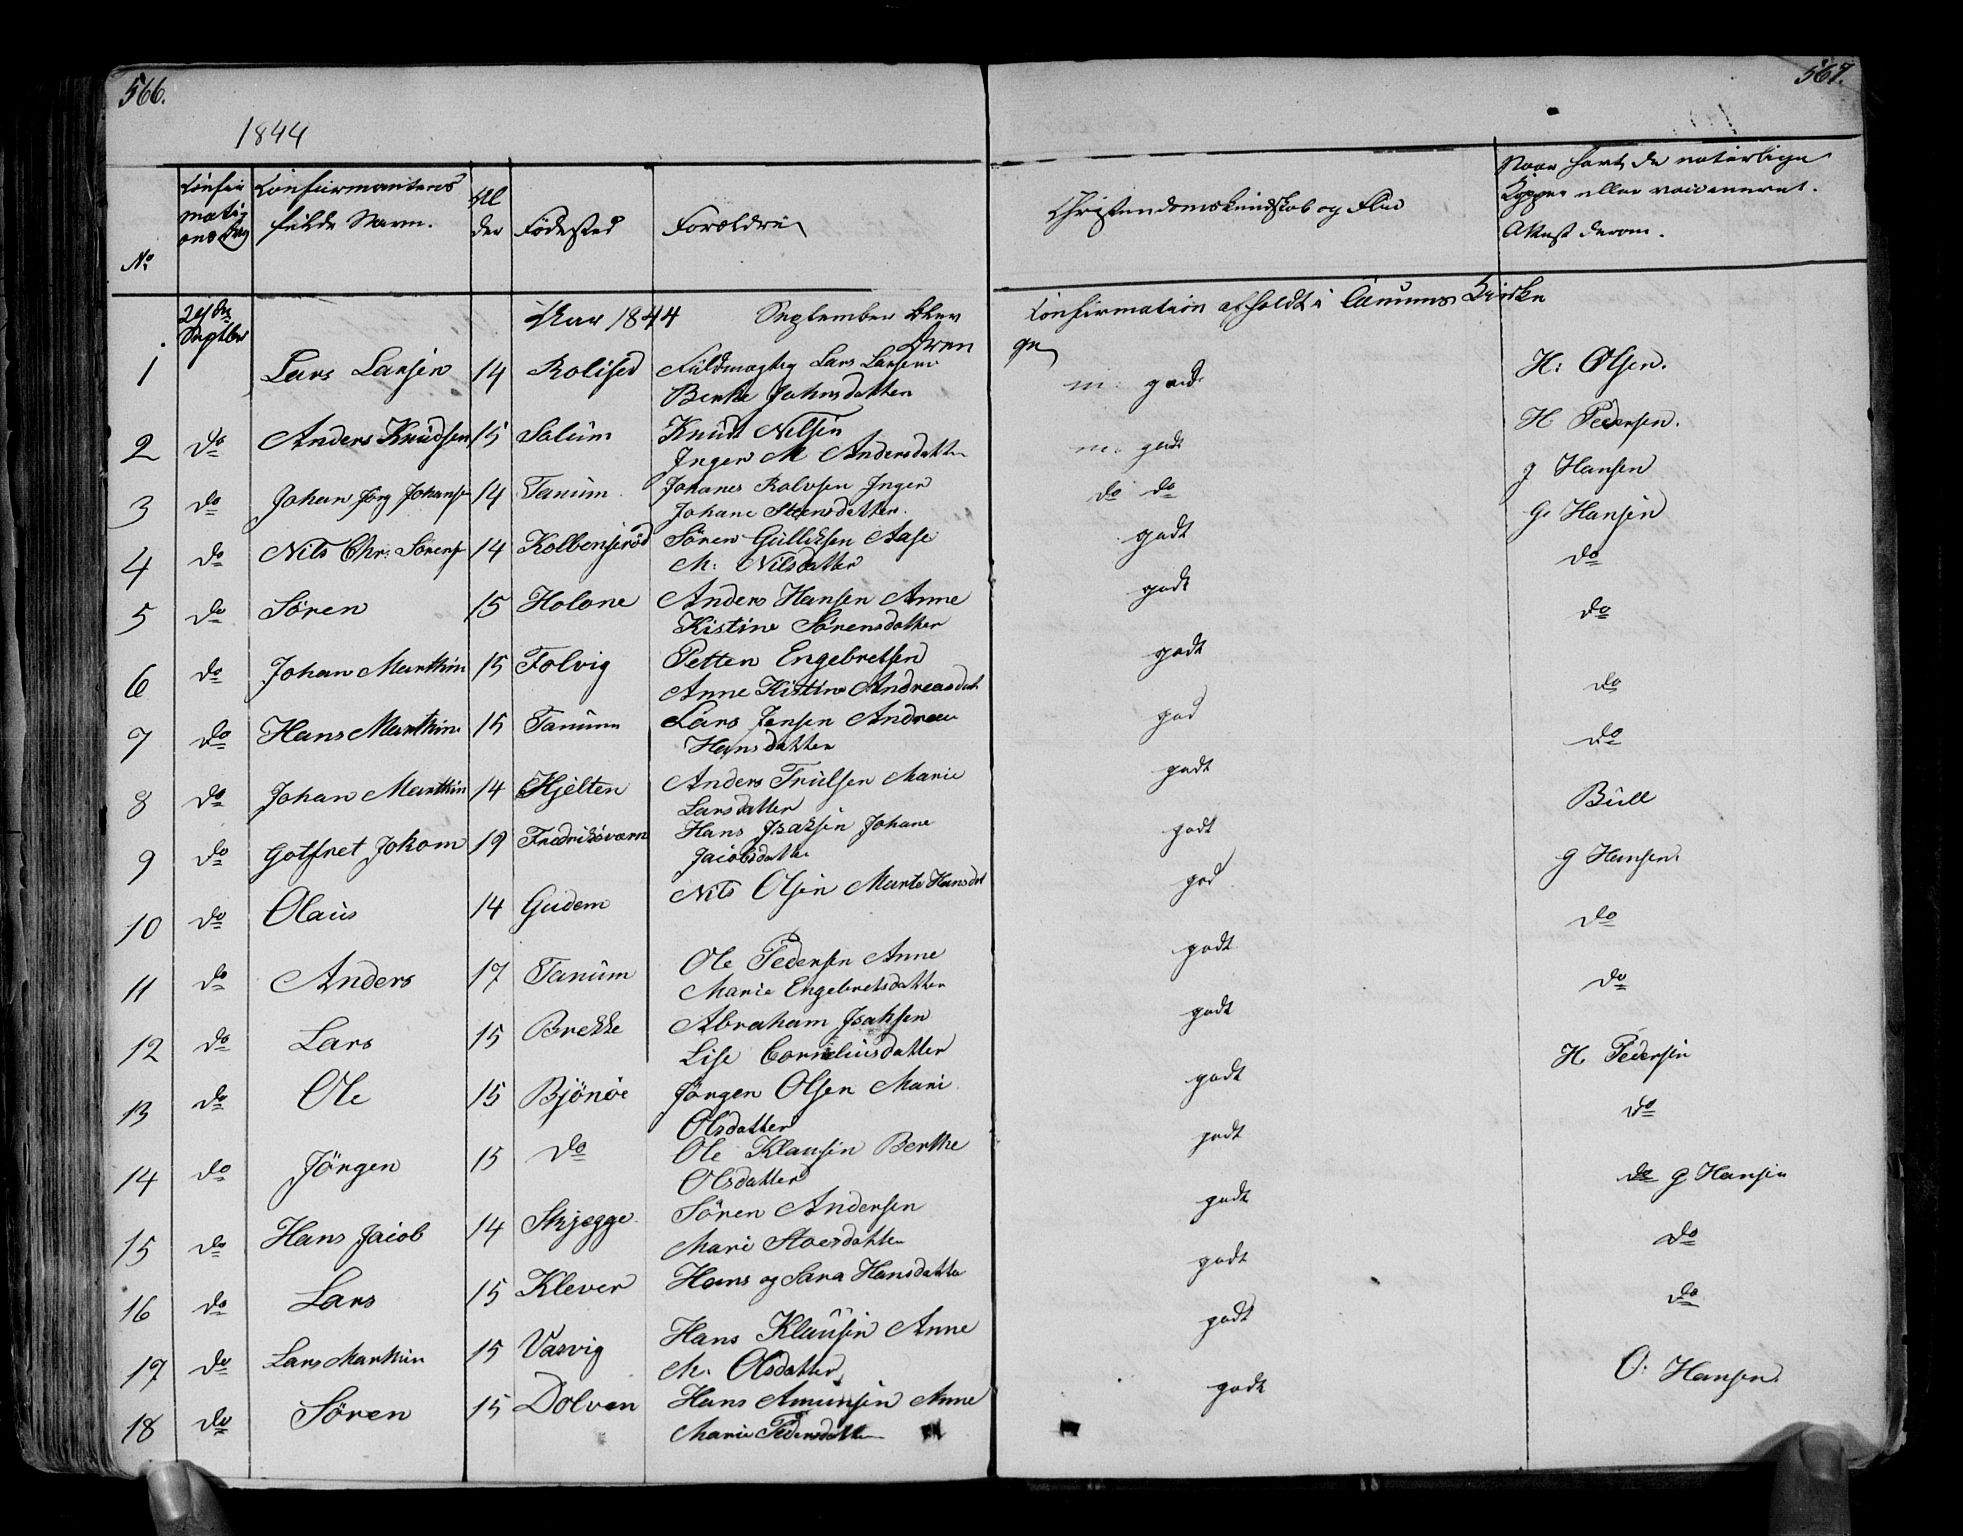 566.
567.
1844
No Confirmations Dag Confirmantens fulde Navn. Alder Fødested Forældre Christendomskundskab og Flid Naar havt de naturlige Kopper eller vaccineret. Attest derom.
24de Septbr Aar 1844 September blev Confirmation afholdt i Tanums Kirke
Drenge
1 Lars Larsen 14 Fuldmægtig Lars Larsen m: godt H: Olsen.
Berthe Johnsdatter
2 do Anders Knudsen 15 Salum Knud Nilsen m: godt H Pedersen.
Inger M Andersdatter
3 do Johan Jørg Johansen 14 Tanum Johanes Rolvsen Inger do do g Hansen
Johane Steensdatter.
4 do Nils Chr: Sørens 14 Kolbensrød Søren Gulliksen Aase godt G. Hansen
M: Nilsdatter
5 do Søren 15 Holone Anders Hansen Anne godt do
Kistine Sørensdatter
6 do Johan Marthin 15 Folvig Petter Engebretsen godt do
Anne Kistine Andreasdat
7 do Hans Marthin 15 Tanum Lars Jensen Andrea god do
Hansdatter
8 do Johan Marthin 14 Kjelten Anders Trulsen Marie godt do
Larsdatter
9 do Gotfret Johom 19 Fredriksværn Hans Isaksen Johane godt Bull
Jacobsdatter
10 do Olaus 14 Gudem Nils Olsen Marte Hansdat god g Hansen.
11 do Anders 17 Tanum Ole Pedersen Anne godt do
Marie Engebretsdatter
12 do Lars 15 Brekke Abraham Isaksen godt do
Lise Corneliusdatter
13 do Ole 15 Bjønøe Jørgen Olsen Mari godt H. Pedersen
Olsdatter
14 do Jørgen 15 do Ole Klausen Berthe godt do
Olsdatter
15 do Hans Jacob 14 Skjegge Søren Andersen godt do g Hansen
Mari
16 do Lars 15 Klever Hans og Sara Hansdatte godt do
17 do Lars Marthin 15 Vasvig Hans Klausen Anne godt do
M. Olsdatter
18 do Søren 15 Dolven Hans Amunsen Anne godt O: Hansen.
Marie Pedersdatter